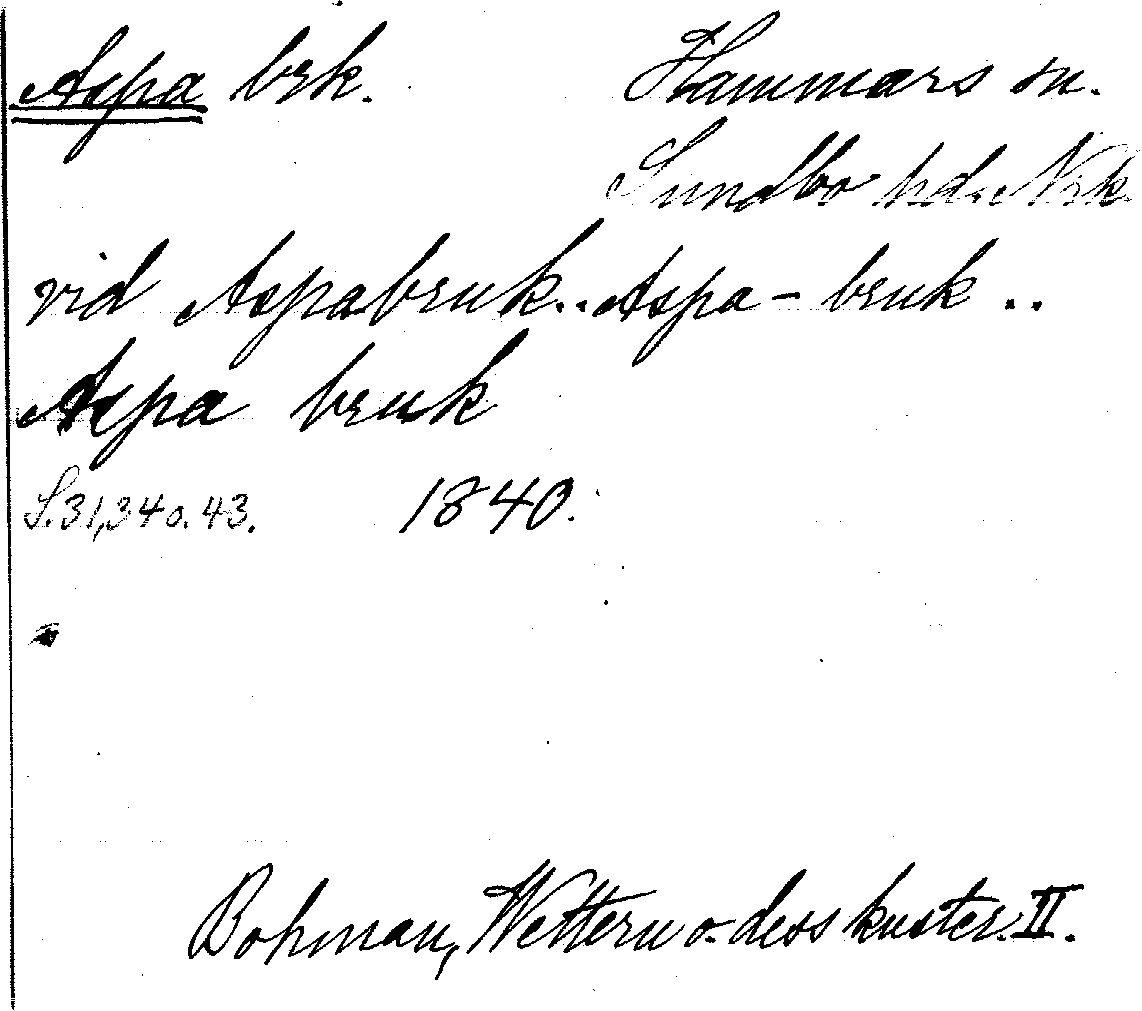 Aspa brk. Hammars sn.
Sundbo hd. Nrk.
vid Aspabruk.. Aspa-bruk ..
Aspa bruk
S. 31, 34 o. 43. 1840.
Bohman, Wettern o. dess kuster. II.